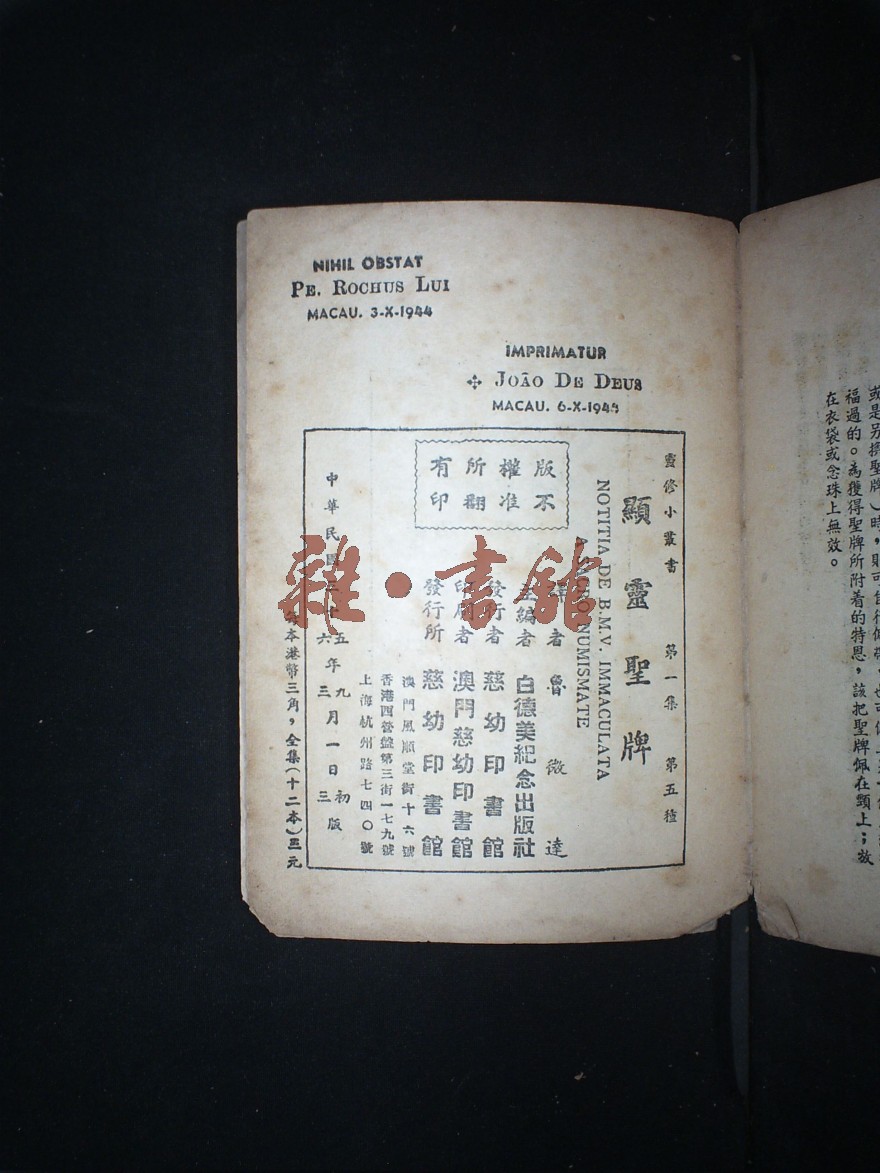 NIHIL OBSTAT
PE. ROCHUS LUI
MACAU. 3-X-1944
IMPRIMATUR
✣ JOÃO DE DEUS
MACAU. 6-X-1944
靈修小叢書 第一集 第五種
顯靈聖牌
NOTITIA DE B.M.V. IMMACULATA
A SACRO NUMISMATE
版權所有
不准翻印
譯者 魯微達
主編者 白德美紀念出版社
發行者 慈幼印書館
印刷者 澳門慈幼印書館
發行所 慈幼印書館
澳門風順堂街十六號
香港西營盤第三街一七九號
上海杭州路七四〇號
中華民國三十五年九月一日初版
六 三 三
每本港幣三角，全集(十二本)三元
福過的。為獲得聖牌所附着的特恩，該把聖牌佩在頸上；故
在衣袋或念珠上無效。
雜·書館